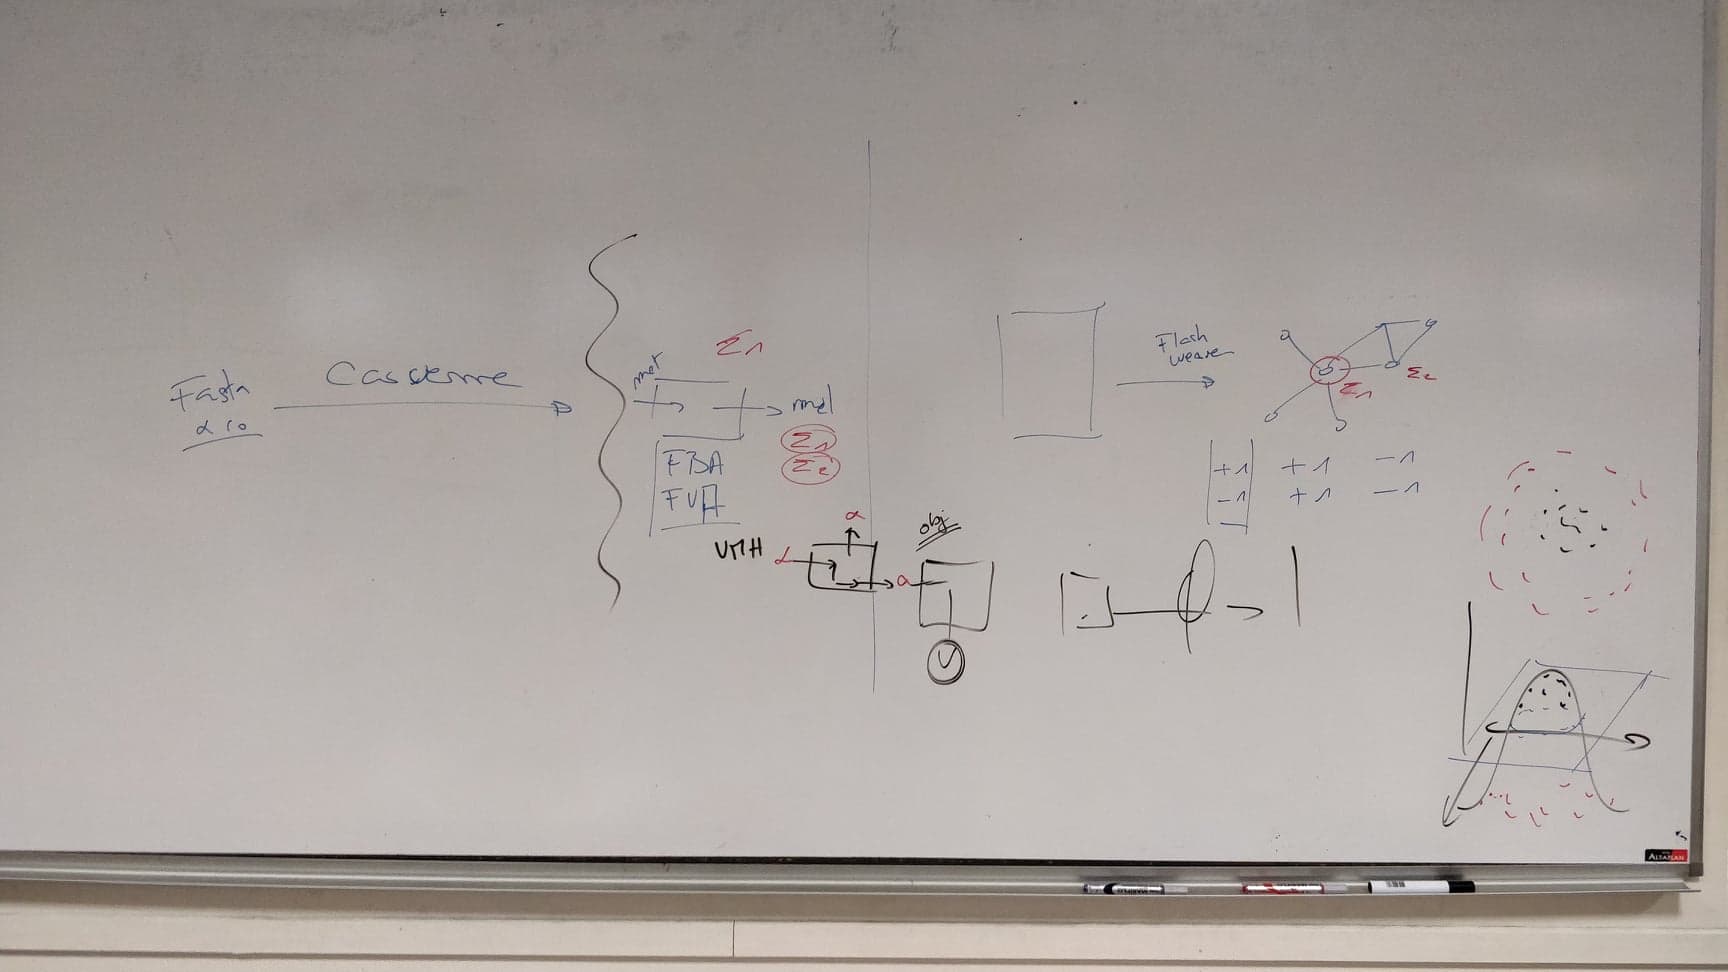 Fasta
α 10
Casseme
Σ1
met
met
Σ1
Σ2
FBA
FVA
VMH
α
α
a
obj
Flash
weave
Σ1
Σ2
+1 +1 -1
-1 +1 -1
ALTAPLAN